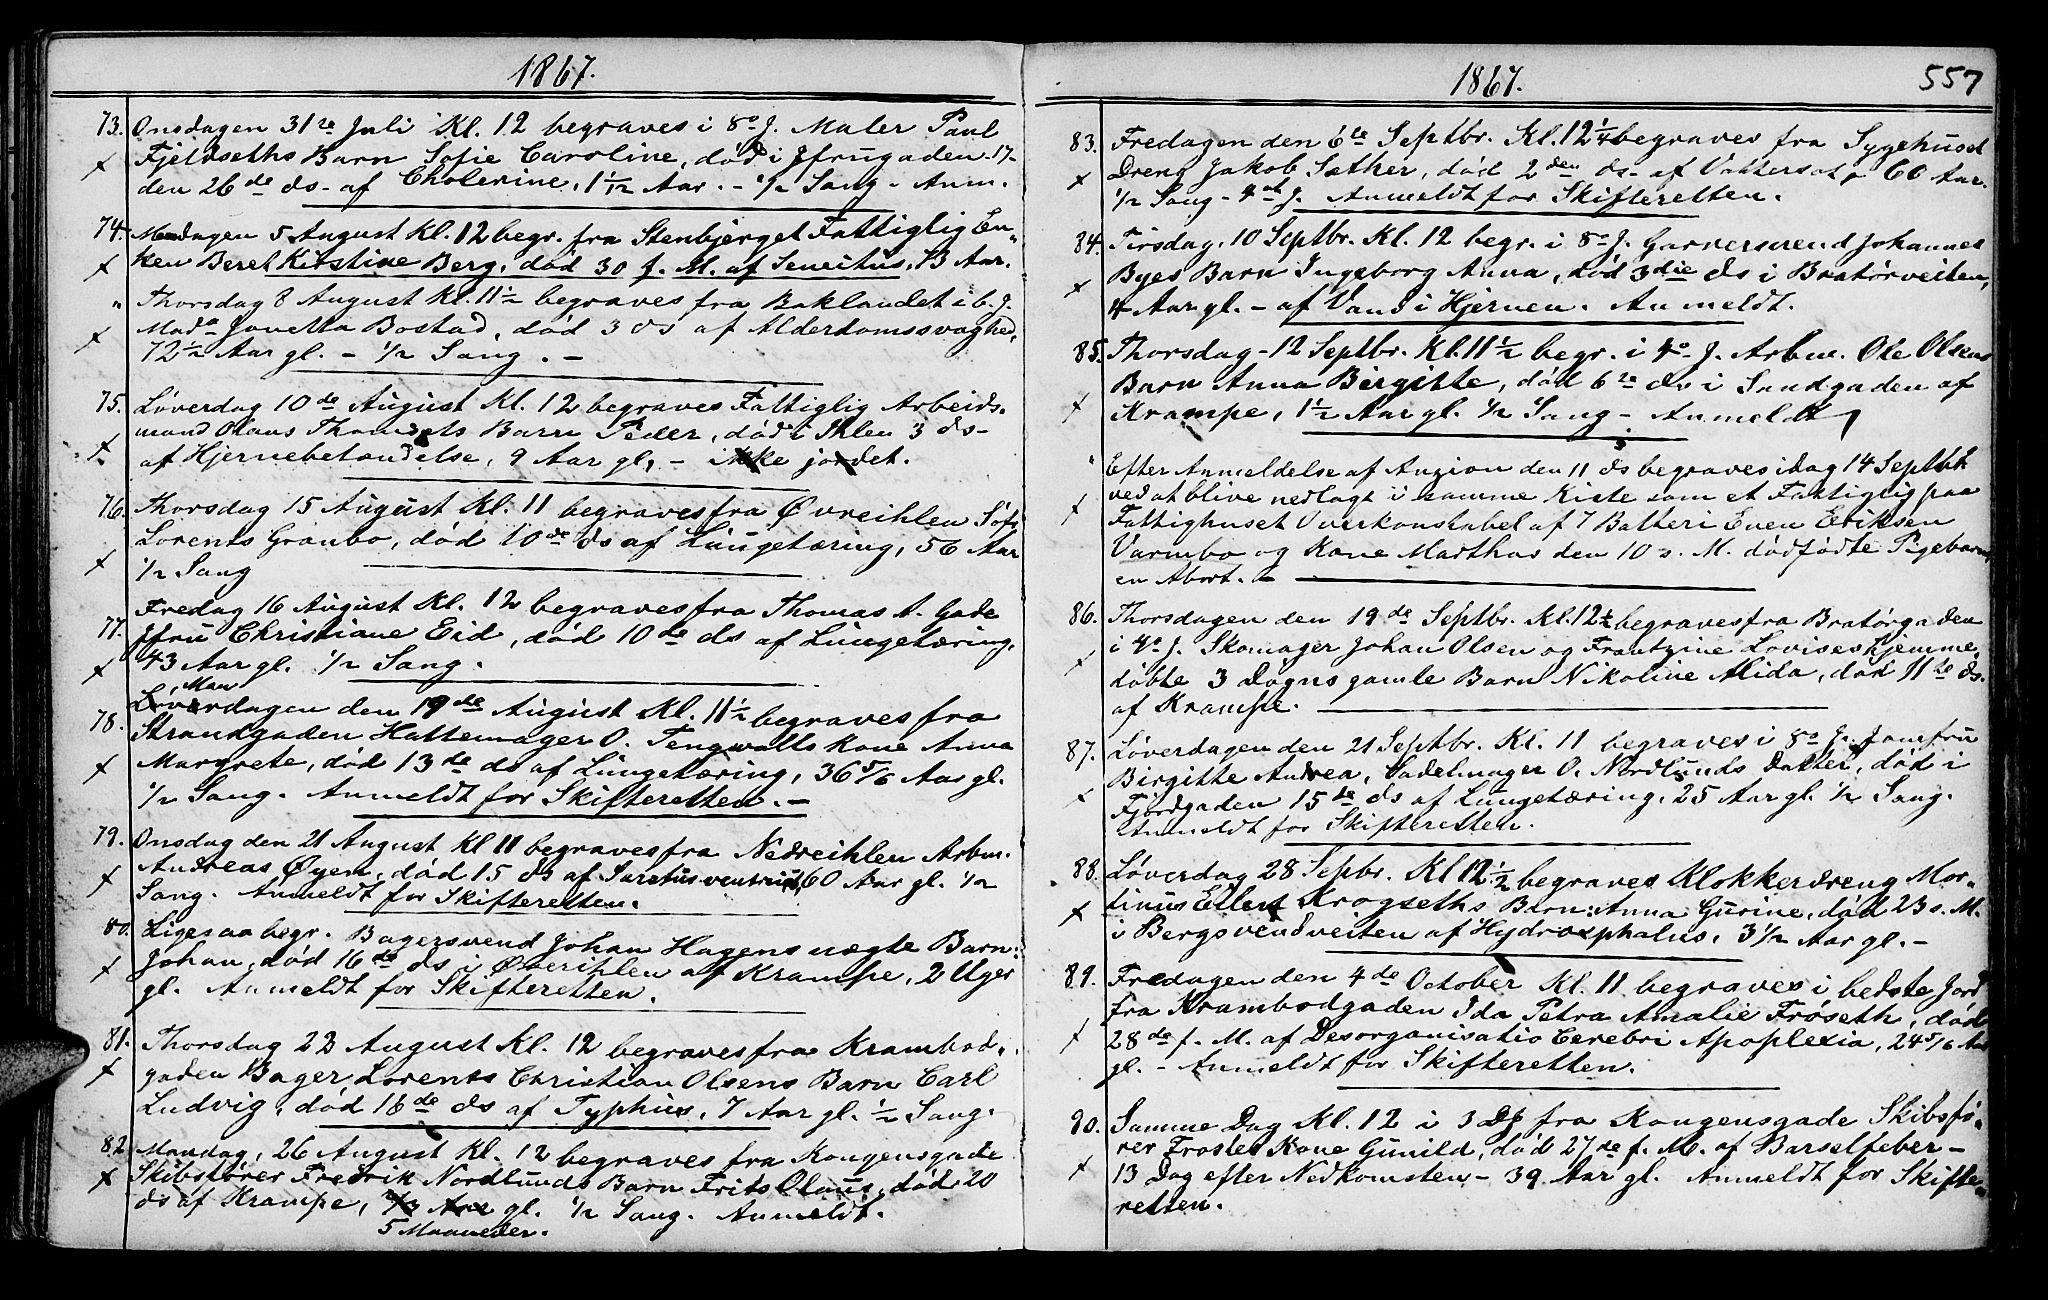 1867.
73. Onsdagen 31te Juli Kl. 12 begraves i 8o J. Maler Paul
Fjeldseths Barn Sofie Caroline, død i Jfrugaden 17-
den 26de ds- af Cholerine, 1 1/12 Aar. - 1/2 Sang - Anm.
74. Mandagen 5 August Kl. 12 begr. fra Stenbjerget Fattiglig En-
ken Beret Kirstine Berg, død 30 f. M. af Senectus, 73 Aar.
" Thorsdag 8 August Kl. 11 1/2 begraves fra Baklandet i 6. J.
Mada Janetta Bostad, død 3 ds af Alderdomssvaghed,
72 1/2 Aar gl. - 1/2 Sang. -
75. Løverdag 10de August Kl. 12 begraves Fattiglig Arbeids-
mand Olaus Barn Peder, død i Ihlen 3 ds-
af Hjernebetændelse, 9 Aar gl, - ikke jordet.
76. Thorsdag 15 August Kl. 11 begraves fra Øvreihlen
Lorents Granbo, død 10de ds af Lungetæring, 56 Aar
1/2 Sang
77. Fredag 16 August Kl. 12 begraves fra Thomas A. Gade
Jfru Christiane Eid, død 10de ds af Lungetæring,
43 Aar gl. 1/2 Sang.
Man
78. Løverdagen den 19de August Kl. 11 1/2 begraves fra
Strandgaden Hattemager O. Tengwalls Kone Anna
Margrete, død 13de ds af Lungetæring, 36 5/6 Aar gl.
1/2 Sang. Anmeldt for Skifteretten. -
79. Onsdag den 21 August Kl 11 begraves fra Nedreihlen Arbm.
Andreas Øyen, død 15 ds af 60 Aar gl. 1/2
Sang. Anmeldt for Skifteretten.
80. Ligesaa begr. Bagersvend Johan Hagens uægte Barn:
Johan, død 16de ds i Øverihlen af Krampe, 2 Uger
gl. Anmeldt for Skifteretten.
81. Thorsdag 22 August Kl. 12 begraves fra Krambod-
gaden Bager Lorents Christian Olsens Barn Carl
Ludvig, død 16de ds af Typhus, 7 Aar gl. 1/2 Sang.
82. Mandag, 26 August Kl. 12 begraves fra Kongensgade
Skibsfører Fredrik Nordlunds Barn Frits Olaus, død 20
ds af Krampe, Aar gl. 1/2 Sang. Anmeldt.
5 Maaneder.
1867. 557
83. Fredagen den 6te Septbr. Kl. 12 1/4 begraves fra Sygehuset
Dreng Jakob Sæther, død 2den ds- af Vattersot, 60 Aar.
1/2 Sang - 4de J. Anmeldt for Skifteretten.
84. Tirsdag, 10 Septbr. Kl. 12 begr. i 8o J. Garversvend Johannes
Byes Barn Ingeborg Anna, død 3die ds i Bratørveiten,
4 Aar gl. - af Vand i Hjernen. Anmeldt.
85. Thorsdag - 12 Septbr. Kl. 11 1/2 begr. i 4o J. Arbm. Ole Olsens
Barn Anna Birgitte, død 6te ds i Sandgaden af
Krampe, 1 1/2 Aar gl. 1/2 Sang - Anmeldt
" Efter Anmeldelse af Anzion den 11 ds begraves idag 14 Septbr
ved at blive nedlagt i samme Kiste som et Fattiglig paa
Fattighuset Overkonstabel af 7 Batteri Even Eriksen
Varmbo og Kone Marthas den 10 s. M. dødfødte Pigebarn,
en Abort. -
86. Thorsdagen den 19de Septbr. Kl. 12 1/2 begraves fra Bratørgaden
i 4o J. Skomager Johan Olsen og Frantzine Lovises hjemme-
døbte 3 Døgns gamle Barn Nikoline Alida, død 11te ds.
af Krampe.
87. Løverdagen den 21 Septbr. Kl. 11 begraves i 8o J. Jomfru
Birgitte Andrea, Sadelmager O. Nordlunds Datter, død i
Fjordgaden 15de ds af Lungetæring, 25 Aar gl. 1/2 Sang.
Anmeldt for Skifteretten.
88. Løverdag 28 Sepbr. Kl 12 1/2 begraves Klokkerdreng Mor-
tinus Ellert Krogseths Barn: Anna Gurine, død 23 s. M.
i Bergsvendveiten af Hydrocephalus, 3 1/2 Aar gl. -
89. Fredagen den 4de October Kl. 11 begraves i bedste Jord
fra Krambodgaden Ida Petra Amalie Frøseth, død
28de f. M. af Desorganisatio Cerebri Apoplexia, 24 5/6 Aar
gl. - Anmeldt for Skifteretten.
90. Samme Dag Kl. 12 i 3 DJ fra Kongensgade Skibsfø-
rer Frosts Kone Gunild, død 27de f. M. af Barselfeber -
13 Dag efter Nedkomsten - 39 Aar gl. Anmeldt for Skifte-
retten.